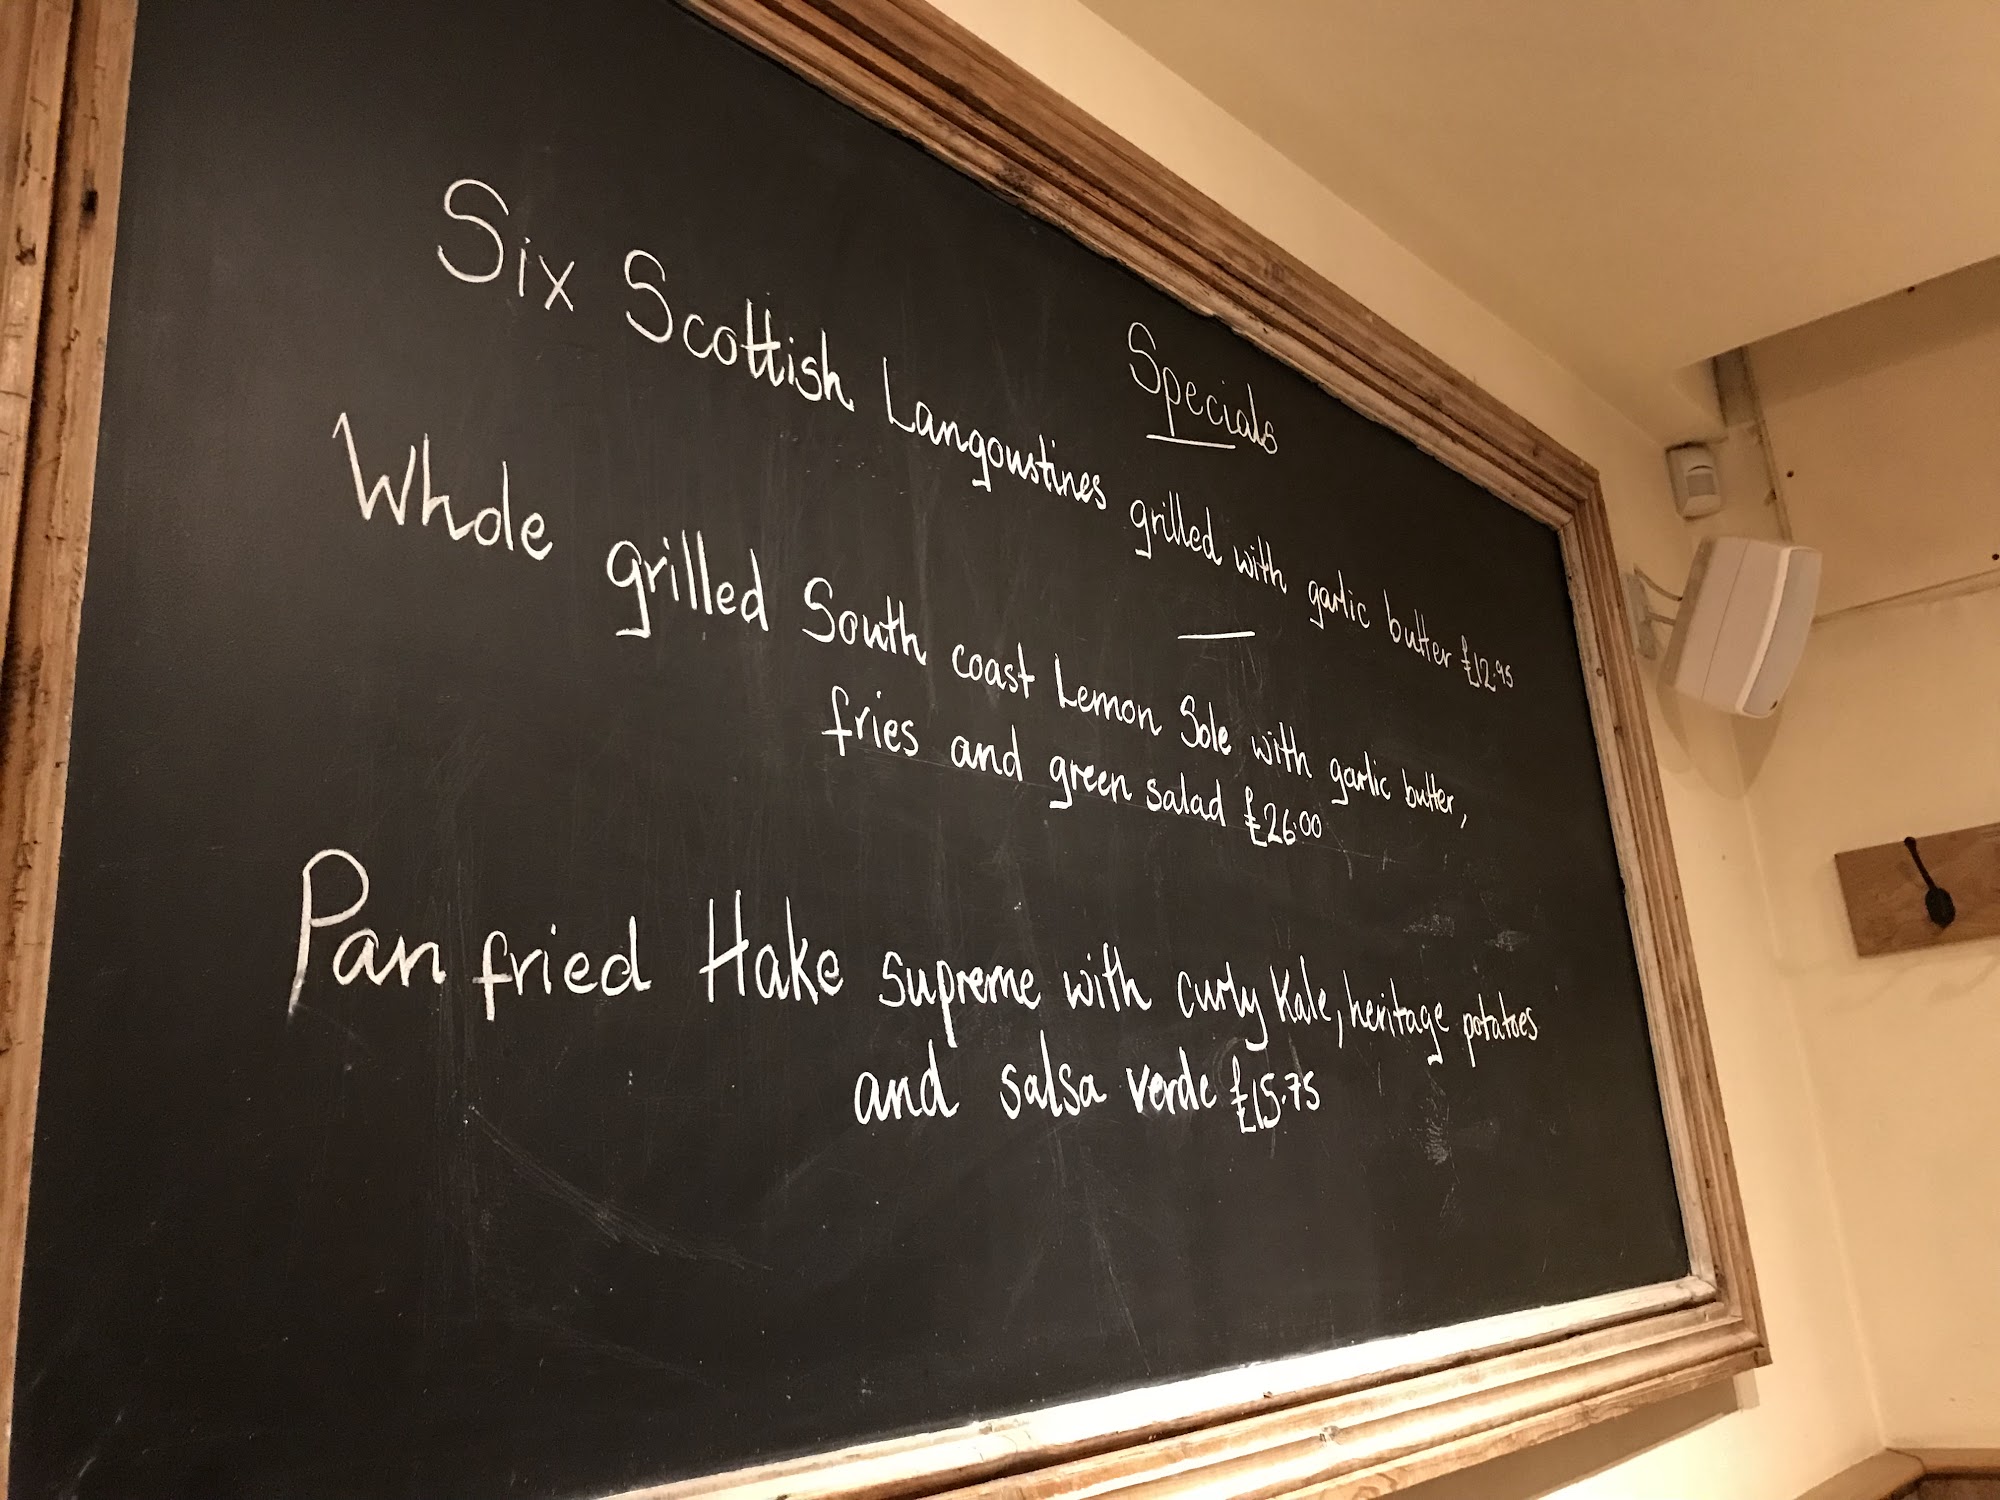 Specials
Six Scottish Langoustines grilled with garlic butter £12.95
Whole grilled South coast Lemon Sole with garlic butter,
fries and green salad £26.00
Pan fried Hake supreme with curly Kale, heritage potatoes
and salsa verde £15.75